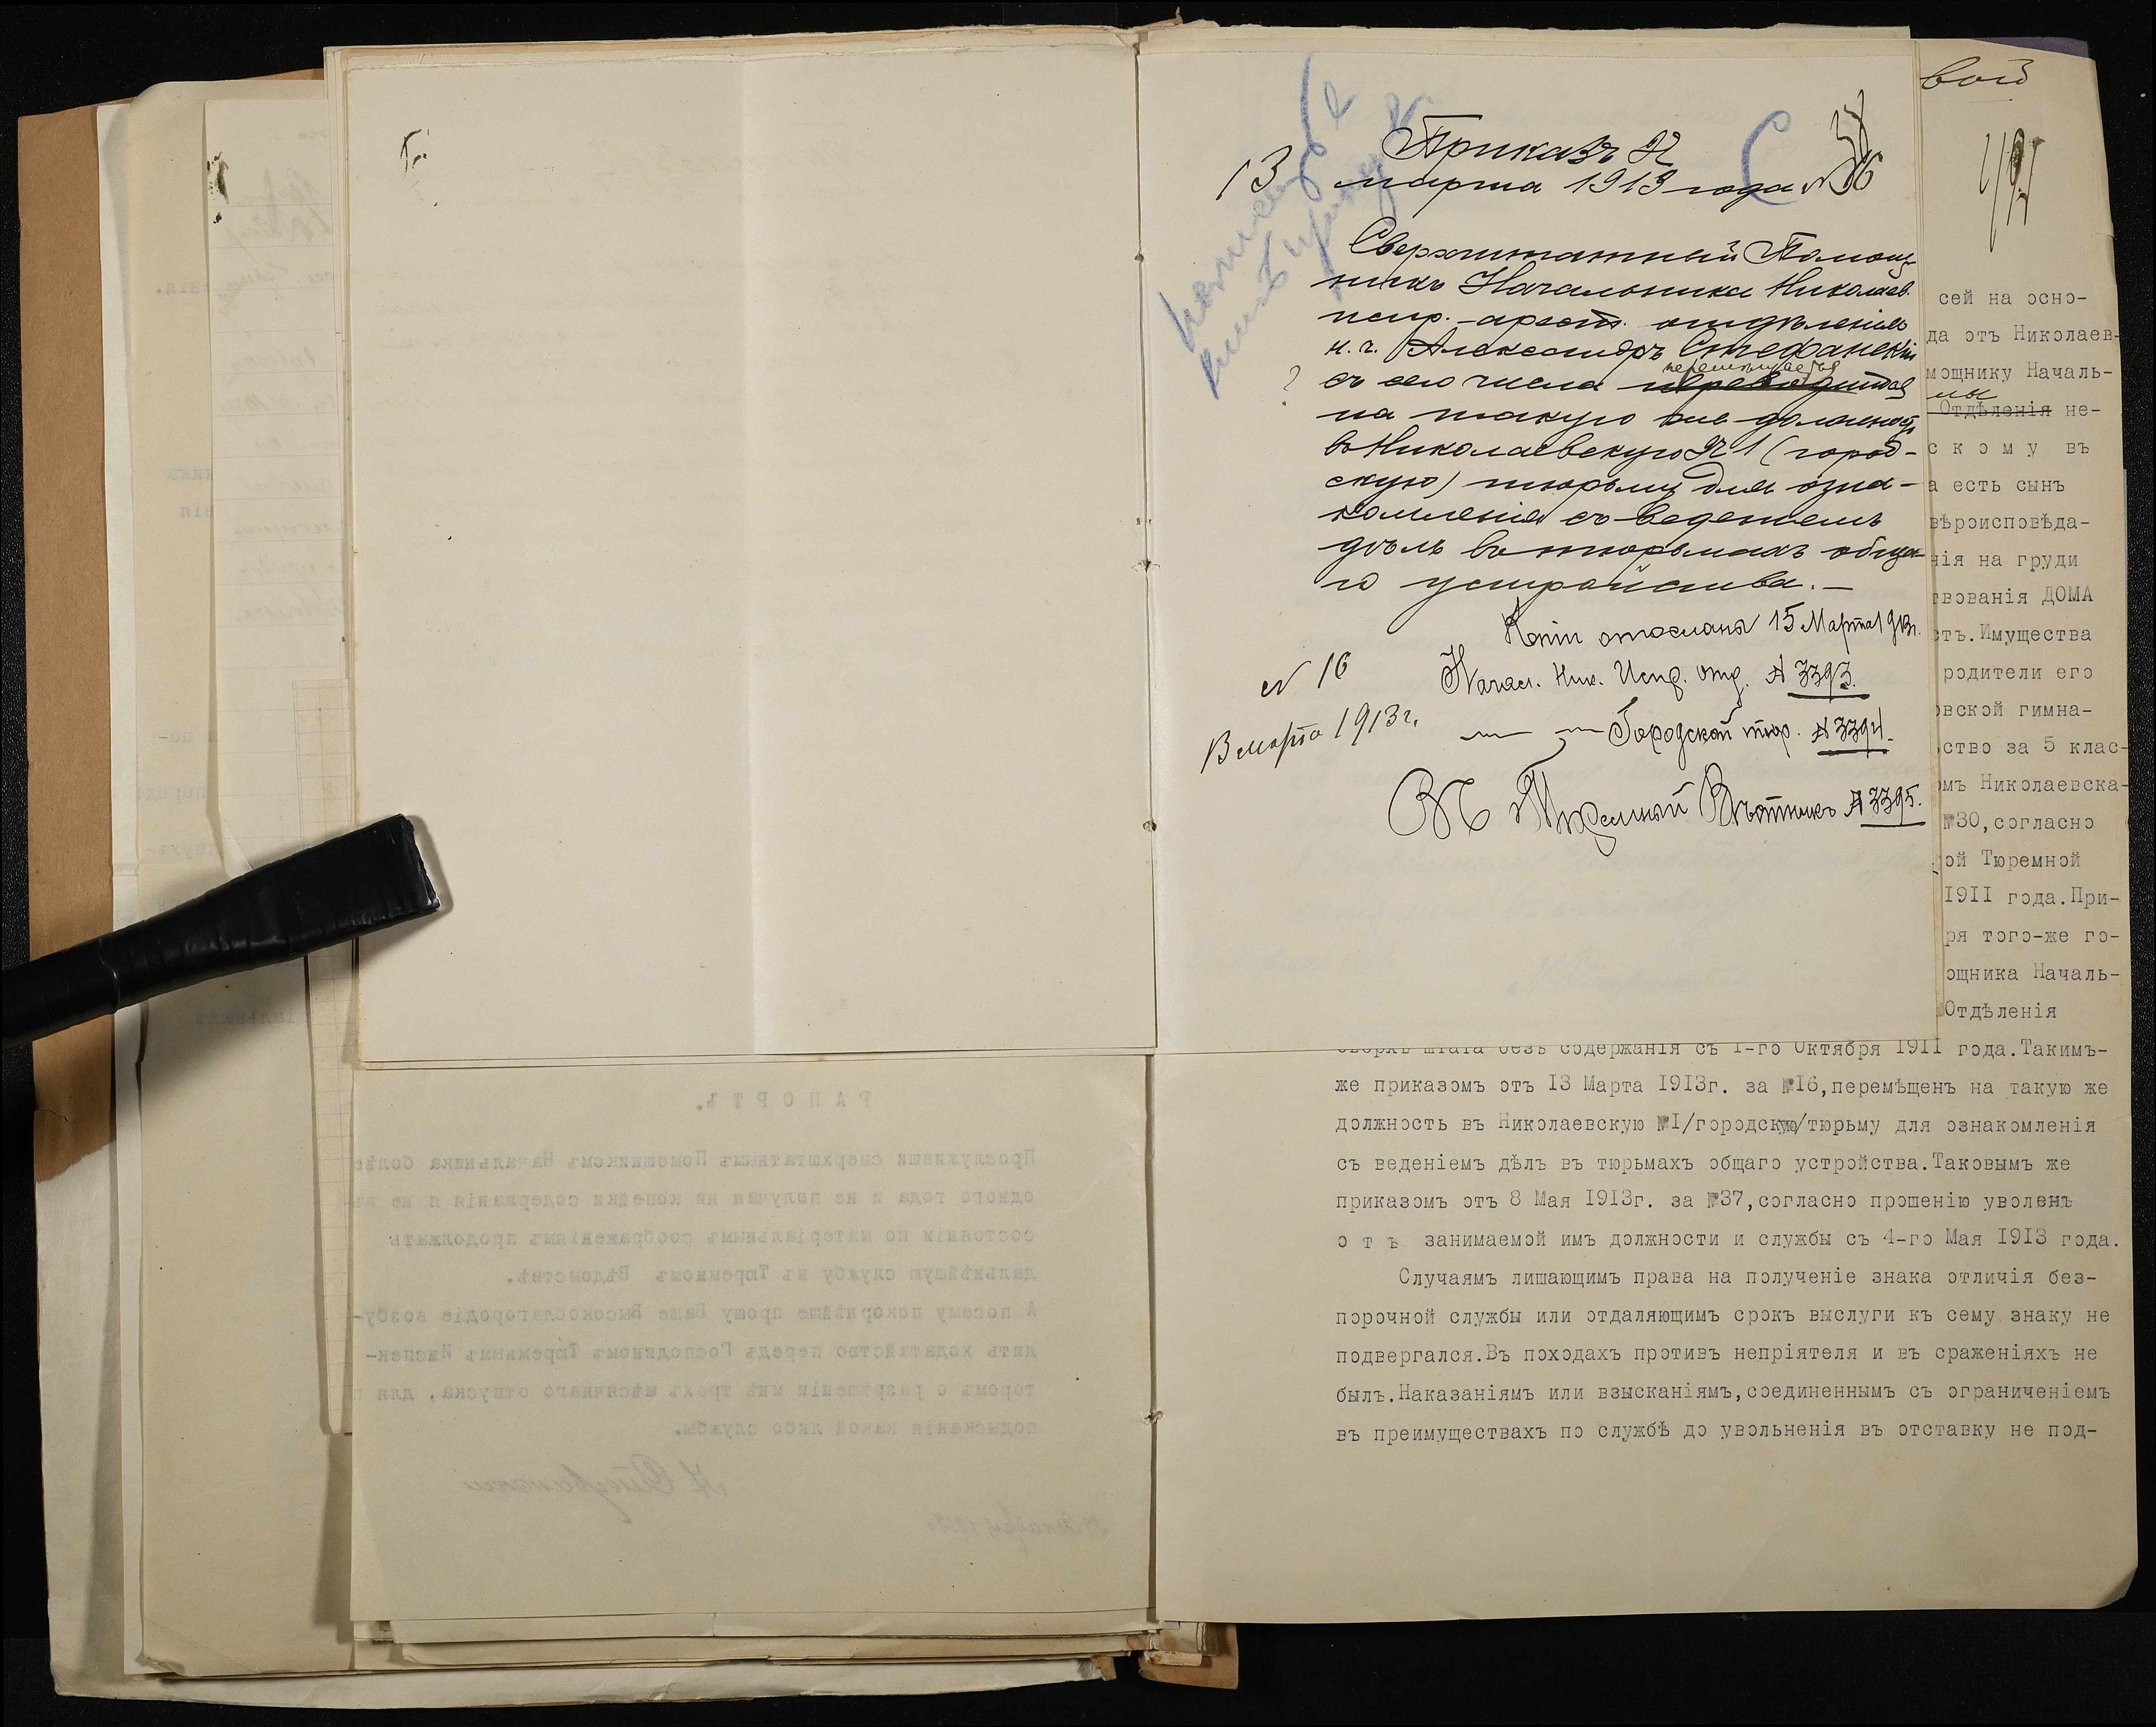 Приказъ №
13 марта 1913 года № 36
Сверхштатный Помощ
никъ Начальника Николаев.
испр.-арест. отдѣленія
н. ч. Александръ Стефанскій
перемѣщается
? съ сего числа переводится
на такую же должность
въ Николаевскую № 1 (город-
скую) тюрьму для озна-
комленія съ веденіемъ
дѣлъ въ тюрьмахъ обща-
го устройства. —
Копіи отосланы 15 Марта 1913г.
№ 16
13 марта 1913 г.
Начал. Ник. Испр. отд. № 3393.
Городской тюр. № 3394.
Тюремный Вѣстникъ № 3395.
вой
сей на осно-
да отъ Николаев-
мощнику Началь-
Отдѣленія не-
скому въ
а есть сынъ
вѣроисповѣда-
нія на груди
твованія ДОМА
сть.Имущества
родители его
овской гимна-
ство за 5 клас-
омъ Николаевска-
№30,согласно
ой Тюремной
1911 года.При-
ря того-же го-
ощника Началь-
Отдѣленія
сверхъ штата безъ содержанія съ 1-го Октября 1911 года.Такимъ-
же приказомъ отъ 13 Марта 1913г. за №16,перемѣщенъ на такую же
должность въ Николаевскую №1/городскую/тюрьму для ознакомленія
съ веденіемъ дѣлъ въ тюрьмахъ общаго устройства.Таковымъ же
приказомъ отъ 8 Мая 1913г. за №37,согласно прошенію уволенъ
отъ занимаемой имъ должности и службы съ 4-го Мая 1913 года.
Случаямъ лишающимъ права на полученіе знака отличія без-
порочной службы или отдаляющимъ срокъ выслуги къ сему знаку не
подвергался.Въ походахъ противъ непріятеля и въ сраженіяхъ не
былъ.Наказаніямъ или взысканіямъ,соединеннымъ съ ограниченіемъ
въ преимуществахъ по службѣ до увольненія въ отставку не под-
РАПОРТЪ.
Прослуживши сверхштатнымъ Помощникомъ Начальника болѣе
одного года и не получая ни копѣйки содержанія я не въ
состояніи по матеріальнымъ соображеніямъ продолжать
дальнѣйшую службу въ Тюремномъ Вѣдомствѣ.
А посему покорнѣйше прошу Ваше Высокоблагородіе возбу-
дить ходатайство передъ Господиномъ Тюремнымъ Инспек-
торомъ о разрѣшеніи мнѣ трехъ мѣсячнаго отпуска, для п
подысканія какой либо службы.